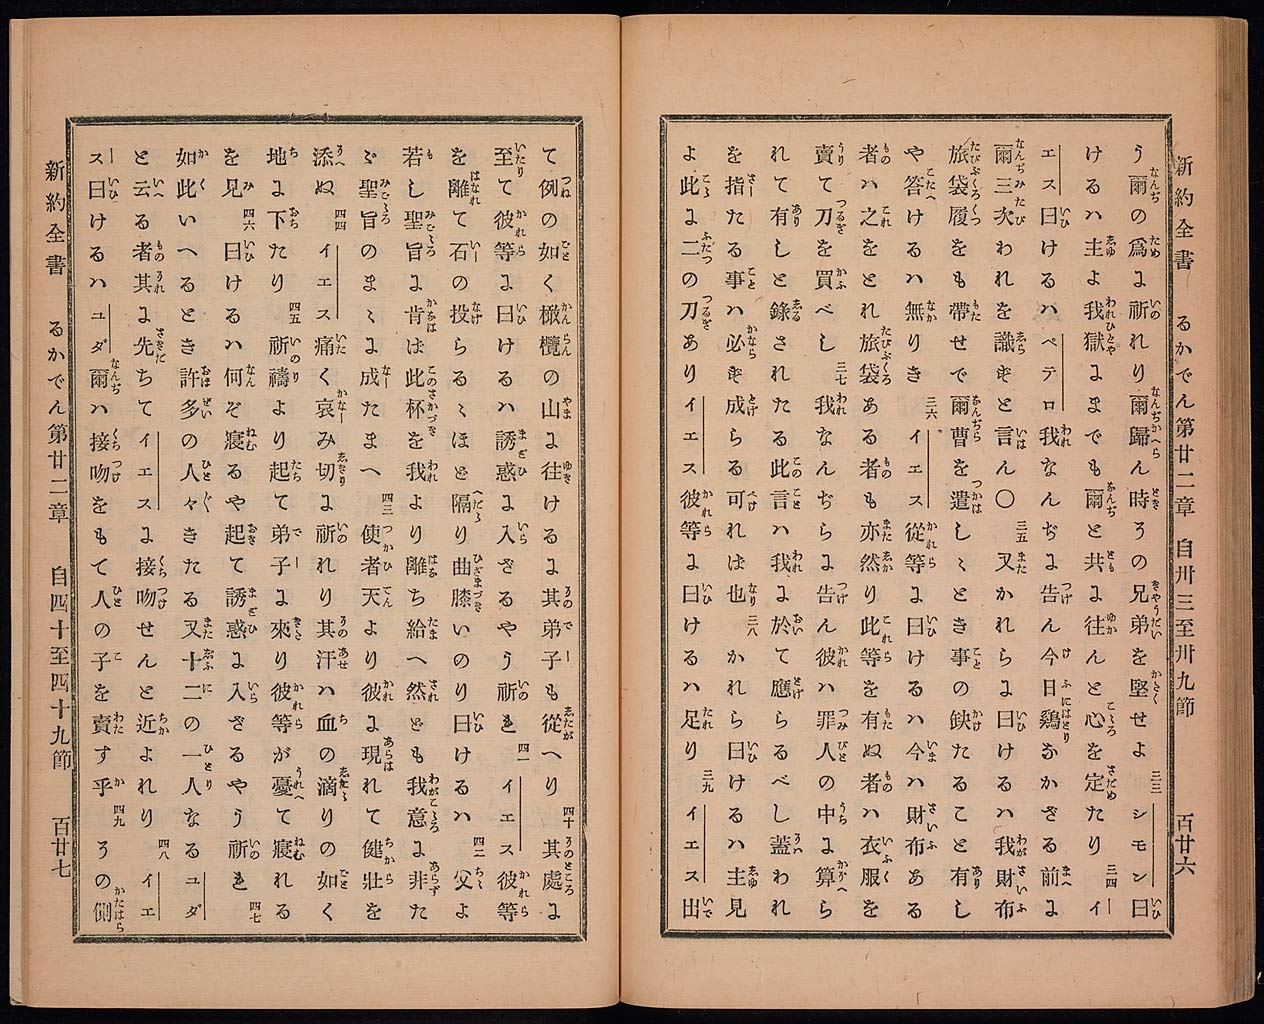 新約全書　るかでん第廿二章　自卅三至卅九節　百廿六
う爾の爲に祈れり爾歸ん時その兄弟を堅せよ 三三 シモン曰
けるハ主よ我獄にまでも爾と共に往んと心を定たり 三四 イ
エス曰けるハペテロ我なんぢに告ん今日鷄なかざる前に
爾三次われを識ずと言ん〇 三五 又かれらに曰けるハ我財布
旅袋履をも帶せで爾曹を遣しゝとき事の缺たること有し
や答けるハ無りき 三六 イエス從等に曰けるハ今ハ財布ある
者ハ之をとれ旅袋ある者も亦然り此等を有ぬ者ハ衣服を
賣て刀を買べし 三七 我なんぢらに告ん彼ハ罪人の中に算ら
れて有しと錄されたる此言ハ我に於て應らるべし蓋われ
を指たる事ハ必ず成らる可れば也 三八 かれら曰けるハ主見
よ此に二の刀ありイエス彼等に曰けるハ足り 三九 イエス出
て例の如く橄欖の山に往けるに其弟子も從へり 四十 其處に
至て彼等に曰けるハ誘惑に入ざるやう祈れ 四一 イエス彼等
を離て石の投らるゝほど隔り曲膝いのり曰けるハ 四二 父よ
若し聖旨に肯ば此杯を我より離ち給へ然ども我意に非た
ゞ聖旨のまゝに成たまへ 四三 使者天より彼に現れて健壯を
添ぬ 四四 イエス痛く哀み切に祈れり其汗ハ血の滴りの如く
地に下たり 四五 祈禱より起て弟子に來り彼等が憂て寢れる
を見 四六 曰けるハ何ぞ寢るや起て誘惑に入ざるやう祈れ 四七
如此いへるとき許多の人々きたる又十二の一人なるユダ
と云る者其に先ちてイエスに接吻せんと近よれり 四八 イエ
ス曰けるハユダ爾ハ接吻をもて人の子を賣す乎 四九 その側
新約全書　るかでん第廿二章　自四十至四十九節　百廿七